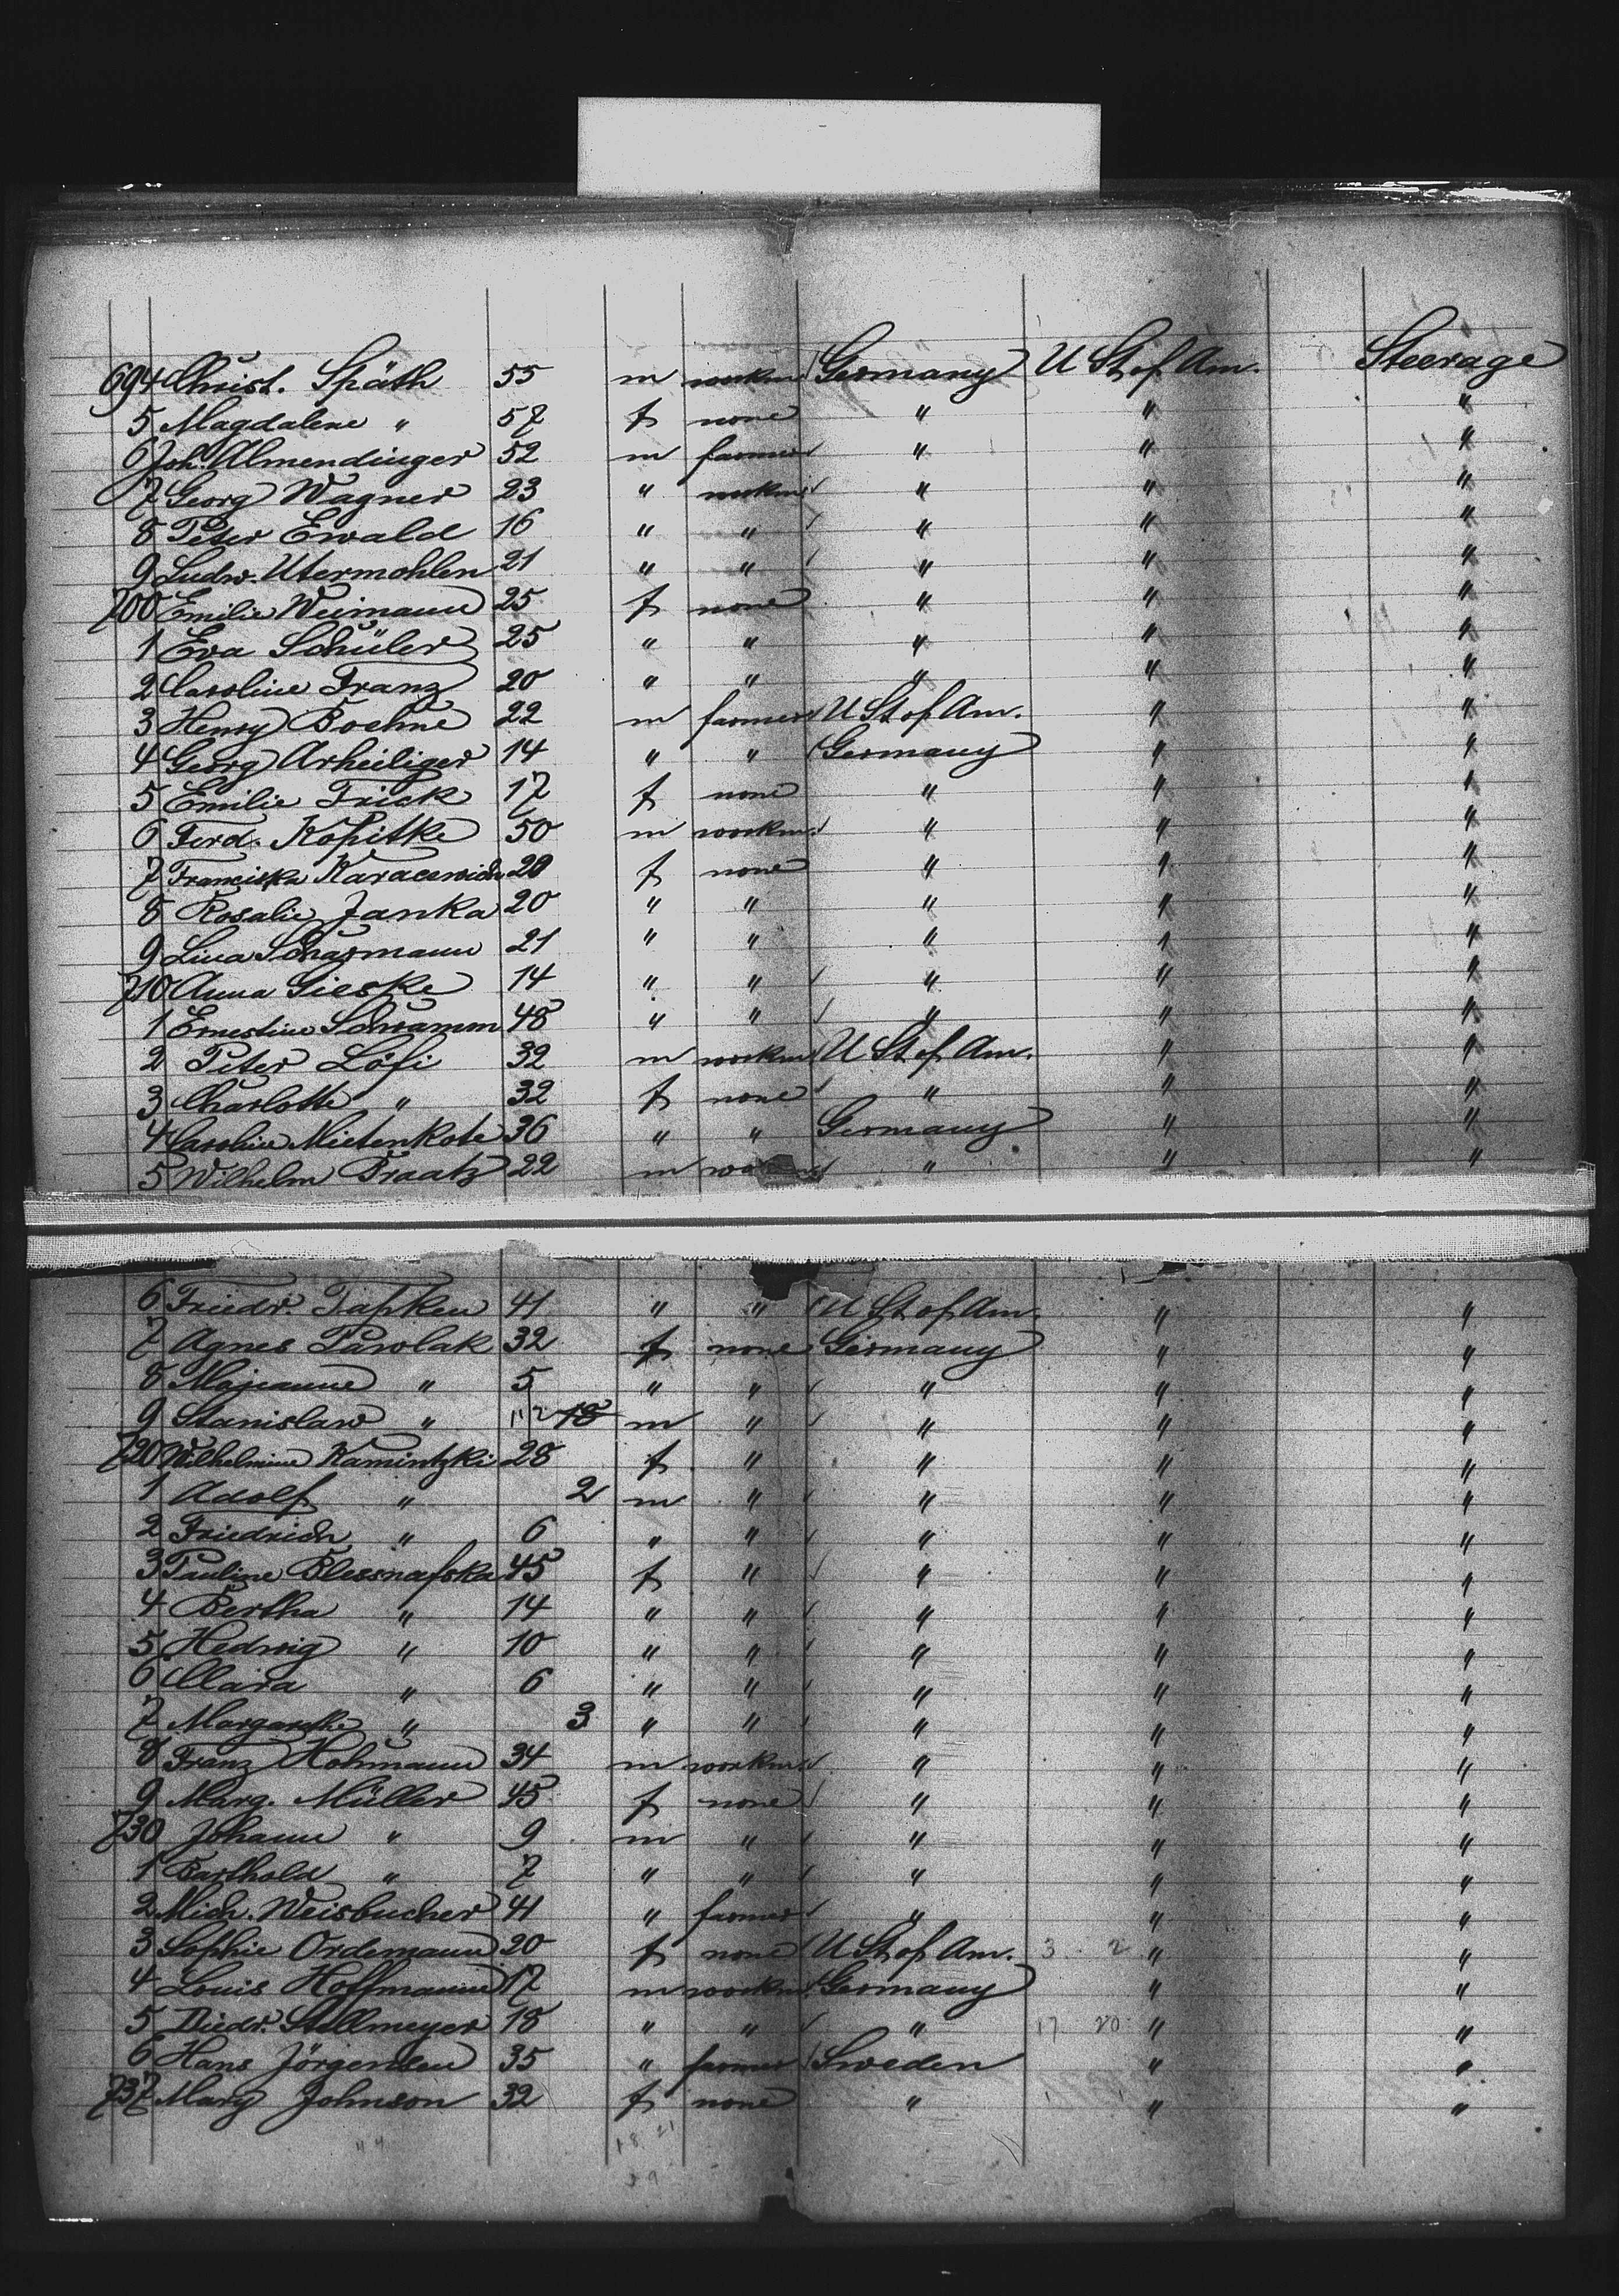 694 Christ. Späth 55 m workm. Germany U St of Am. Steerage
5 Magdalene " 57 f none " " "
6 Joh. Almendinger 52 m farmer " " "
7 Georg Wagner 23 " workm. " " "
8 Peter Ewald 16 " " " " "
9 Ludw. Utermohlen 21 " " " " "
700 Emilie Weimann 25 f none " " "
1 Eva Schüler 25 " " " " "
2 Caroline Franz 20 " " " " "
3 Henry Boehne 22 m farmer U St of Am. " "
4 Georg Arheiliger 14 " " Germany " "
5 Emilie Frick 17 f none " " "
6 Ferd. Kopitke 50 m workm. " " "
7 Franciska 20 f none " " "
8 Rosalie Janka 20 " " " " "
9 Lina Scharmann 21 " " " " "
710 Anna Gieske 14 " " " " "
1 Ernestine Schramm 48 " " " " "
2 Peter Löfi 32 m workm. U St of Am. " "
3 Charlotte " 32 f none " " "
4 Caroline Mietenkote 36 " " Germany " "
5 Wilhelm Braatz 22 m " " "
6 Friedr. Tapken 41 " " U St of Am. " "
7 Agnes Pawolak 32 f none Germany " "
8 Marianne " 5 " " " " "
9 Stanislaw " 11/2 18 m " " " "
720 Wilhelmine Kamintzki 28 f " " " "
1 Adolf " 2 m " " " "
2 Friedrich " 6 " " " " "
3 Pauline 45 f " " " "
4 Bertha " 14 " " " " "
5 Hedwig " 10 " " " " "
6 Clara " 6 " " " " "
7 Margarethe " 3 " " " " "
8 Franz Hohmann 34 m workm. " " "
9 Marg. Müller 45 f none " " "
730 Johann " 9 m " " " "
1 Barthold " 7 " " " " "
2 Mich. Weisbucher 41 " farmer " " "
3 Sophie Ordemann 20 f none U St of Am. 3 2 " "
4 Louis Hoffmann 17 m workm. Germany " "
5 Diedr. Stellmeyer 18 " " " 17 20 " "
6 Hans Jörgensen 35 " farmer Sweden " "
737 Mary Johnson 32 f none " " "